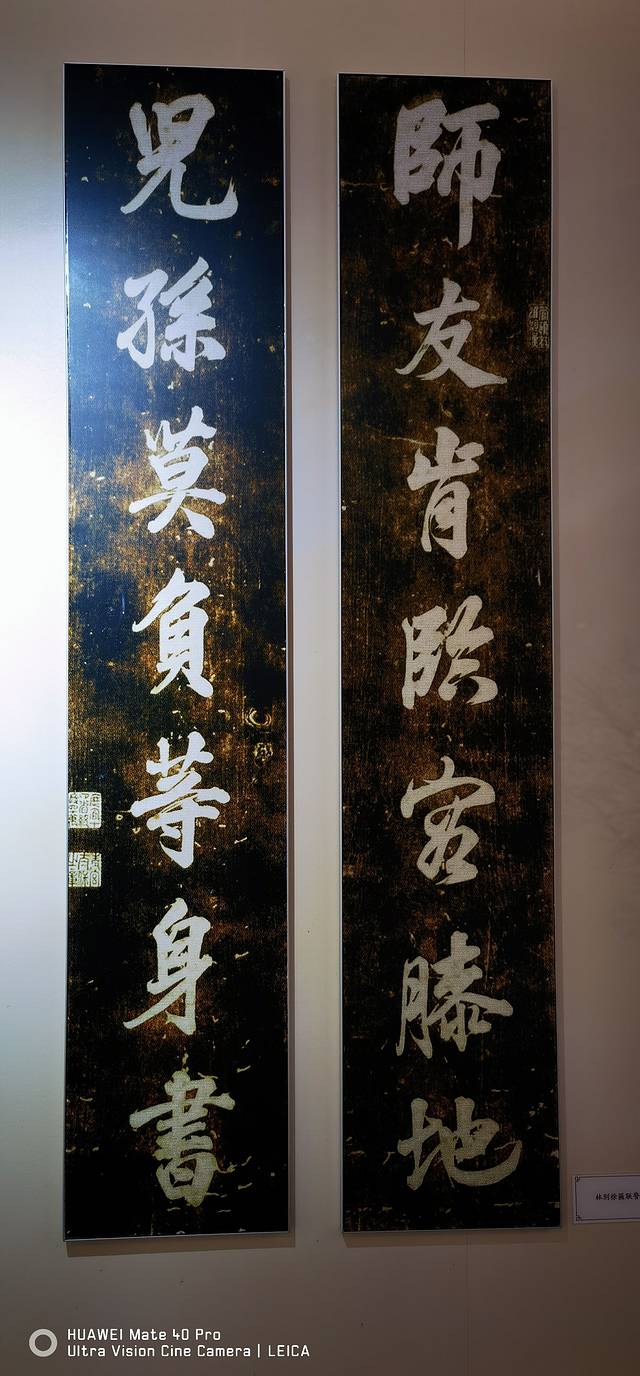 師友肯臨容膝地
兒孫莫負等身書
林则徐
HUAWEI Mate 40 Pro
Ultra Vision Cine Camera | LEICA